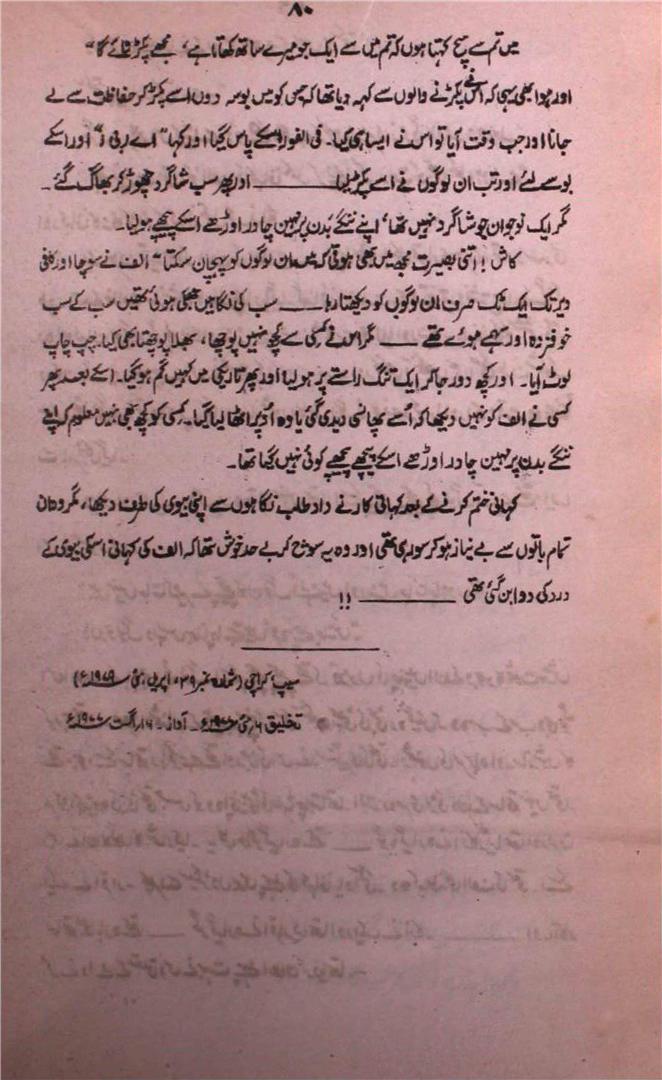 ۸۰
میں تم سے سچ کہتا ہوں کہ تم میں سے ایک جو میرے ساتھ کھاتا ہے، مجھے پکڑوائے گا"
اور ہوا بھی یہی کہ اس نے پکڑنے والوں سے کہہ دیا تھا کہ جس کو میں بوسہ دوں اسے پکڑ کر حفاظت سے لے
جانا اور جب وقت آیا تو اس نے ایسا ہی کیا۔ فی الفور اسکے پاس گیا اور کہا "اے ربی" اور اسکے
بوسے لئے اور تب ان لوگوں نے اسے پکڑ لیا ـــــــ اور پھر سب شاگرد چھوڑ کر بھاگ گئے۔
مگر ایک نوجوان جو شاگرد نہیں تھا، اپنے ننگے بدن پر مہین چادر اوڑھے اسکے پیچھے ہولیا۔
کاش! اتنی بصیرت مجھ میں بھی ہوتی کہ میں ان لوگوں کو پہچان سکتا" الف نے سوچا اور کافی
دیر تک ایک ٹک صرف ان لوگوں کو دیکھتا رہا ـــــــ سب کی نگاہیں جھکی ہوئی تھیں سب کے سب
خوفزدہ اور سہمے ہوئے تھے ـــــــ مگر اس نے کسی سے کچھ نہیں پوچھا، بھلا پوچھتا بھی کیا۔ چپ چاپ
لوٹ آیا۔ اور کچھ دور جاکر ایک تنگ راستے پر ہولیا اور پھر تاریکی میں کہیں گم ہوگیا۔ اسکے بعد پھر
کسی نے الف کو نہیں دیکھا کہ اُسے پھانسی دیدی گئی یا وہ اُوپر اٹھا لیا گیا۔ کسی کو کچھ بھی نہیں معلوم کہ اپنے
ننگے بدن پر مہین چادر اوڑھے اسکے پیچھے پیچھے کوئی نہیں گیا تھا۔
کہانی ختم کرنے کے بعد کہانی کار نے داد طلب نگاہوں سے اپنی بیوی کی طرف دیکھا، مگر وہ ان
تمام باتوں سے بے نیاز ہو کر سو رہی تھی اور وہ یہ سوچ کر بے حد خوش تھا کہ الف کی کہانی اسکی بیوی کے
درد کی دوا بن گئی تھی ـــــــ !!
سیپ، کراچی (شمارہ نمبر ۳۹، اپریل، مئی ۱۹۷۹ء)
تخلیق ۶؍ مئی ۱۹۷۷ء۔ آواز۔ ۱۶؍ اگست ۱۹۷۷ء